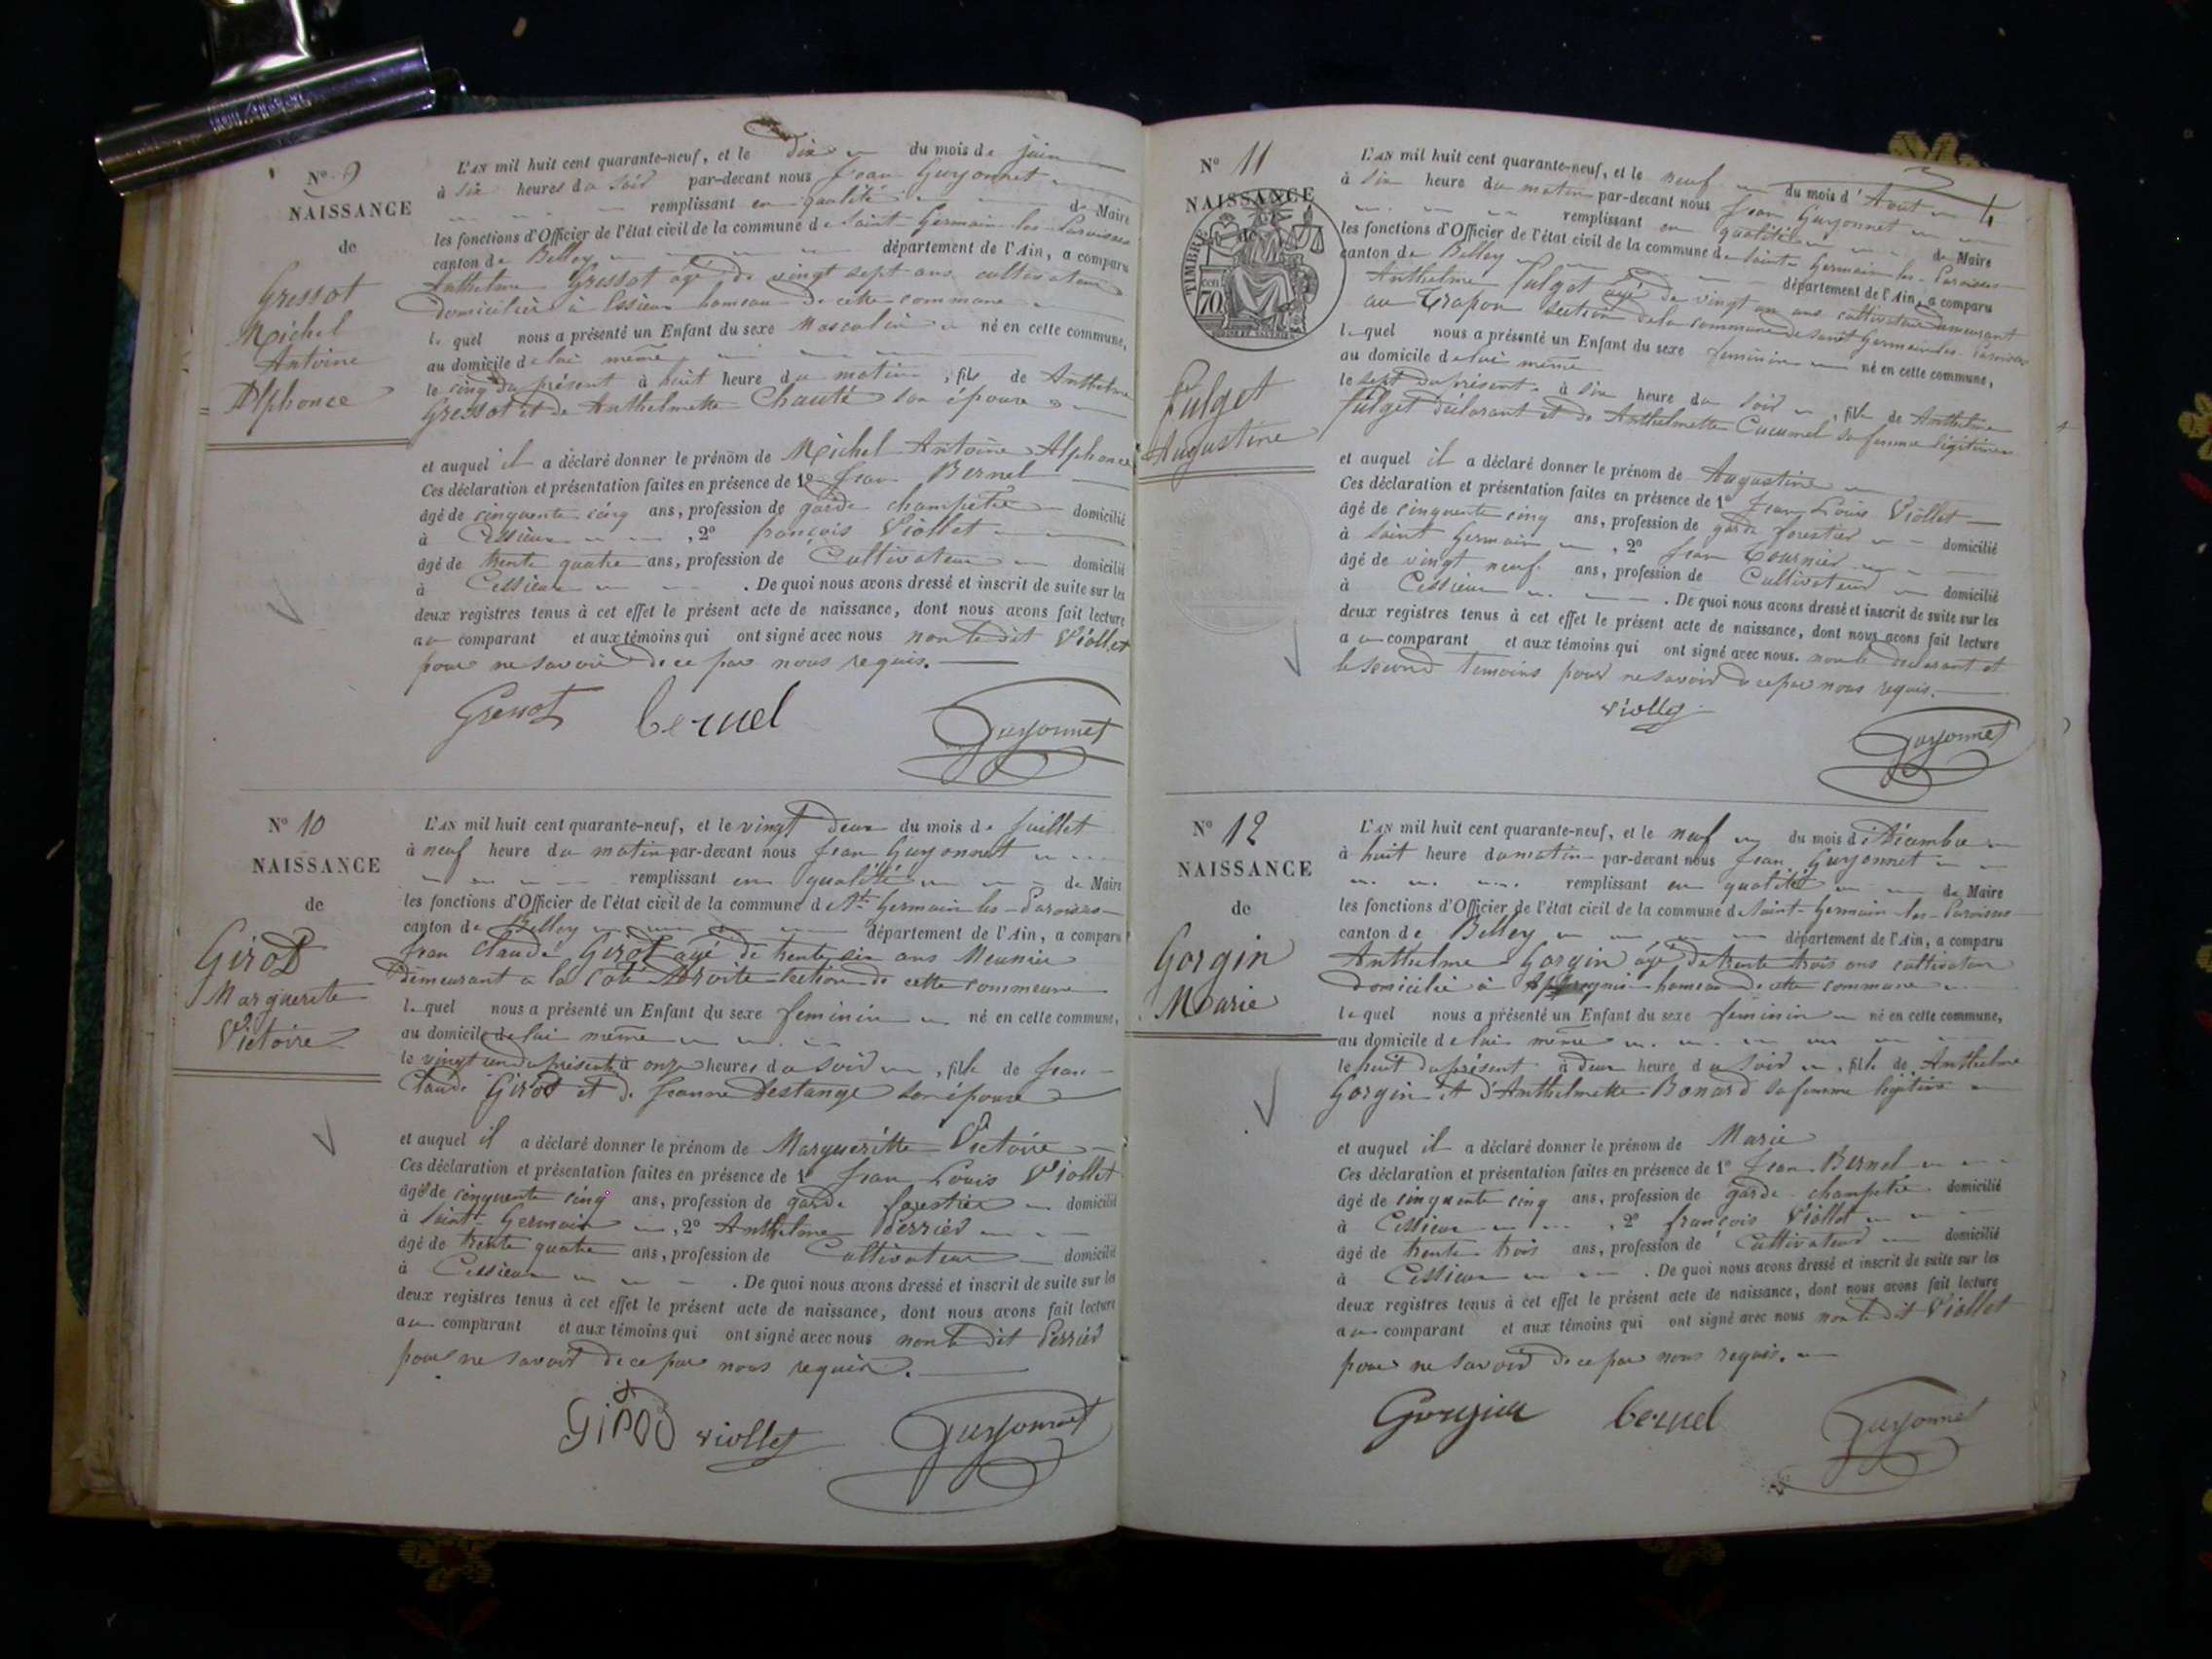 N° 9
NAISSANCE
de
Gressot
Michel
Antoine
Alphonce
L'AN mil huit cent quarante-neuf, et le dix du mois de juin
à six heures du soir par-devant nous Jean Guyonnet
remplissant en qualité de Maire
les fonctions d'Officier de l'état civil de la commune de Saint Germain les Paroisses
canton de Belley département de l'Ain, a comparu
Anthelme Gressot agé de vingt sept ans cultivateur
domicilié à Essieux hameau de cette commune
le quel nous a présenté un Enfant du sexe Masculin né en cette commune,
au domicile de lui même
le cinq du présent à huit heure du matin, fils de Anthelme
Gressot et de Anthelmette Chauté son épouse
et auquel il a déclaré donner le prénom de Michel Antoine Alphonce
Ces déclaration et présentation faites en présence de 1° Jean Bernel
âgé de cinquente cinq ans, profession de garde champetre domicilié
à Cessieux, 2° françois Viollet
âgé de trente quatre ans, profession de Cultivateur domicilié
à Cessieux. De quoi nous avons dressé et inscrit de suite sur les
deux registres tenus à cet effet le présent acte de naissance, dont nous avons fait lecture
au comparant et aux témoins qui ont signé avec nous non le dit Viollet
pour ne savoir de ce par nous requis.
Gressot bernel Guyonnet
N° 10
NAISSANCE
de
Girod
Marguerite
Victoire
L'AN mil huit cent quarante-neuf, et le vingt deux du mois de Juillet
à neuf heure du matin par-devant nous Jean Guyonnet
remplissant en qualité de Maire
les fonctions d'Officier de l'état civil de la commune de St Germain les Paroisses
canton de Belley département de l'Ain, a comparu
Jean Claude Girod agé de trente six ans Meunier
demeurant a la Coté Droite section de cette commeune
le quel nous a présenté un Enfant du sexe feminin né en cette commune,
au domicile de lui même
le vingt un du présent à onze heures du soir, fille de Jean
Claude Girod et de Jeanne Destange son épouse
et auquel il a déclaré donner le prénom de Margueritte Victoire
Ces déclaration et présentation faites en présence de 1° Jean Louis Viollet
âgé de cinquente cinq ans, profession de garde forestier domicilié
à Saint Germain, 2° Anthelme Perrier
âgé de trente quatre ans, profession de Cultivateur domicilié
à Cessieux. De quoi nous avons dressé et inscrit de suite sur les
deux registres tenus à cet effet le présent acte de naissance, dont nous avons fait lecture
au comparant et aux témoins qui ont signé avec nous non le dit Perrier
pour ne savoir de ce par nous requis.
GiROD viollet Guyonnet
N° 11
NAISSANCE
de
TIMBRE
70
Fulget
Augustine
L'AN mil huit cent quarante-neuf, et le neuf du mois d'Aout
à six heure du matin par-devant nous Jean Guyonnet
remplissant en qualité de Maire
les fonctions d'Officier de l'état civil de la commune de Saint Germain les Paroisses
canton de Belley département de l'Ain, a comparu
Anthelme fulget agé de vingt un ans cultivateur demeurant
au Trapon section de la commune de Saint Germain les Paroisses
le quel nous a présenté un Enfant du sexe feminin né en cette commune,
au domicile de lui même
le sept du présent à six heure du soir, fille de Anthelme
fulget déclarant et de Anthelmette Cucumel sa femme légitime
et auquel il a déclaré donner le prénom de Augustine
Ces déclaration et présentation faites en présence de 1° Jean Louis Viollet
âgé de cinquente cinq ans, profession de garde forestier domicilié
à Saint Germain, 2° Jean Tournier
âgé de vingt neuf ans, profession de Cultivateur domicilié
à Cessieux. De quoi nous avons dressé et inscrit de suite sur les
deux registres tenus à cet effet le présent acte de naissance, dont nous avons fait lecture
au comparant et aux témoins qui ont signé avec nous. non le declarant et
le second temoins pour ne savoir de ce par nous requis.
viollet
Guyonnet
N° 12
NAISSANCE
de
Gorgin
Marie
L'AN mil huit cent quarante-neuf, et le neuf du mois de Décembre
à huit heure du matin par-devant nous Jean Guyonnet
remplissant en qualité de Maire
les fonctions d'Officier de l'état civil de la commune de Saint-Germain les Paroisses
canton de Belley département de l'Ain, a comparu
Anthelme Gorgin agé de trente trois ans cultivateur
domicilié à hameau de cette commune
le quel nous a présenté un Enfant du sexe feminin né en cette commune,
au domicile de lui même
le huit du présent à deux heure du soir, fille de Anthelme
Gorgin et d'Anthelmette Bonard sa femme légitime
et auquel il a déclaré donner le prénom de Marie
Ces déclaration et présentation faites en présence de 1° Jean Bernel
âgé de cinquente cinq ans, profession de garde champetre domicilié
à Cessieux, 2° françois Viollet
âgé de trente trois ans, profession de Cultivateur domicilié
à Cessieux. De quoi nous avons dressé et inscrit de suite sur les
deux registres tenus à cet effet le présent acte de naissance, dont nous avons fait lecture
au comparant et aux témoins qui ont signé avec nous non le dit Viollet
pour ne savoir de ce par nous requis.
Gorgin bernel Guyonnet